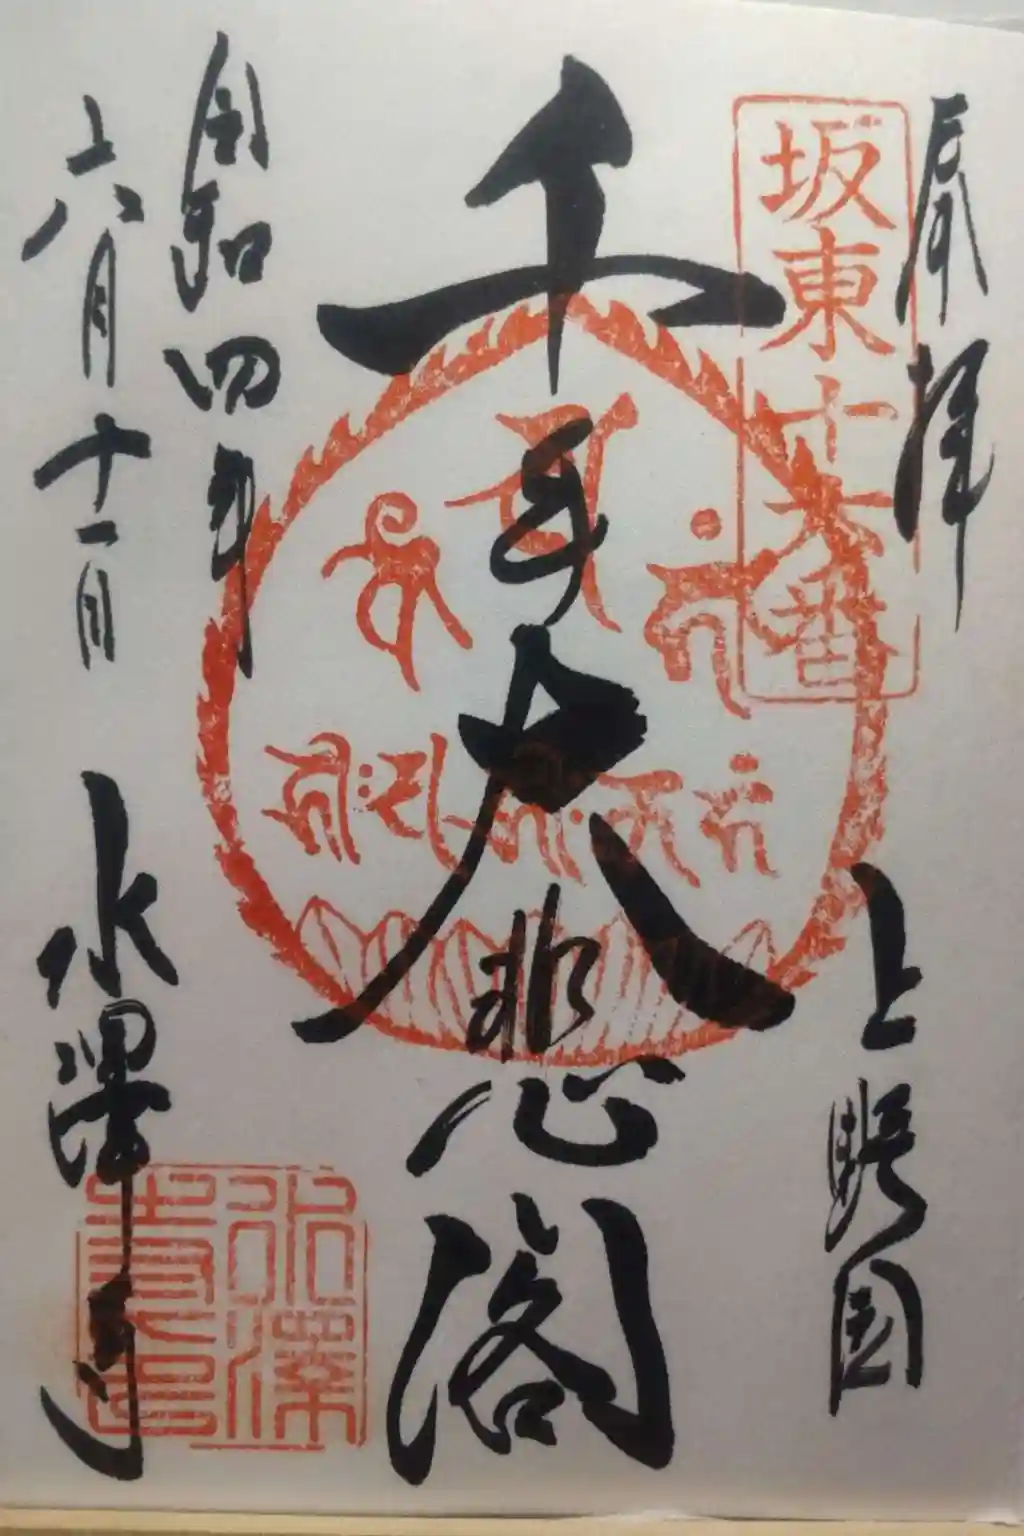 奉拝
坂東十六番
上野国
千手大悲閣
令和四年
六月十一日
水澤寺
水澤
寺印